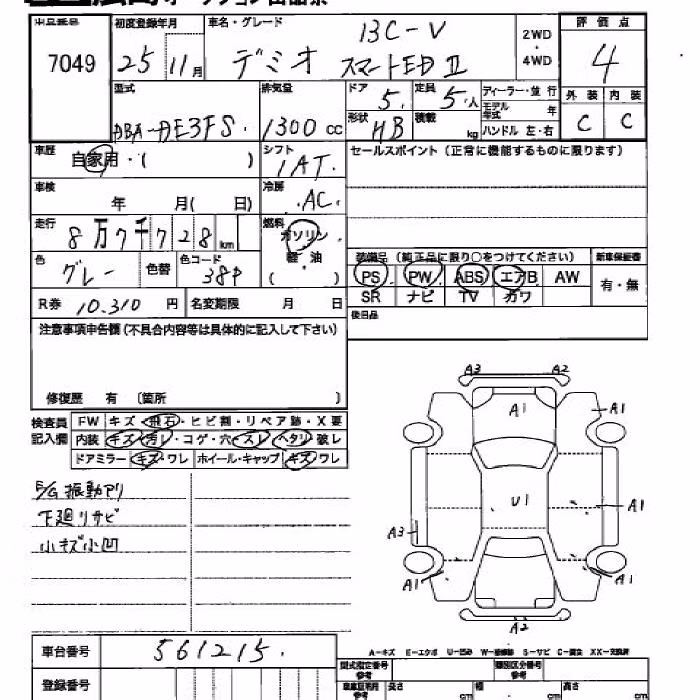 出品番号 初度登録年月 車名・グレード 13C-V 2WD・4WD 評価点
7049 25 11月 デミオ スマートED II 4
型式 排気量 ドア 5 定員 5人 ディーラー・並行 外装 内装
DBA-DE3FS 1300cc 形状 HB 積載 kg モデル年式 年 C C
ハンドル 左・右
車歴 自家用・( ) シフト 1AT. セールスポイント(正常に機能するものに限ります)
車検 年 月( 日) 冷房 AC.
走行 8万7千728km 燃料 ガソリン・軽・油 ( )
色 グレー 色替 色コード 38P
装備品 (純正品に限り○をつけてください) 新車保証書
PS PW ABS エアB AW 有・無
SR ナビ TV カワ
R券 10.310 円 名変期限 月 日 後日品
注意事項申告欄(不具合内容等は具体的に記入して下さい)
修復歴 有 〔箇所 〕
検査員記入欄 FW キズ・飛石・ヒビ割・リペア跡・X要
内装 キズ・汚レ・コゲ・穴・スレ・ヘタリ・破レ
ドアミラー キズ・ワレ ホイール・キャップ キズ・ワレ
E/G振動アリ
下廻りサビ
小キズ小凹
A3 A2
A1 A1
U1 A1
A3
A1 A1
A2
A-キズ E-エクボ U-凹み W-補修跡 S-サビ C-腐食 XX-交換済
車台番号 561215.
型式指定番号 参考 類別区分番号 参考
登録番号
長さ cm 幅 cm 高さ cm